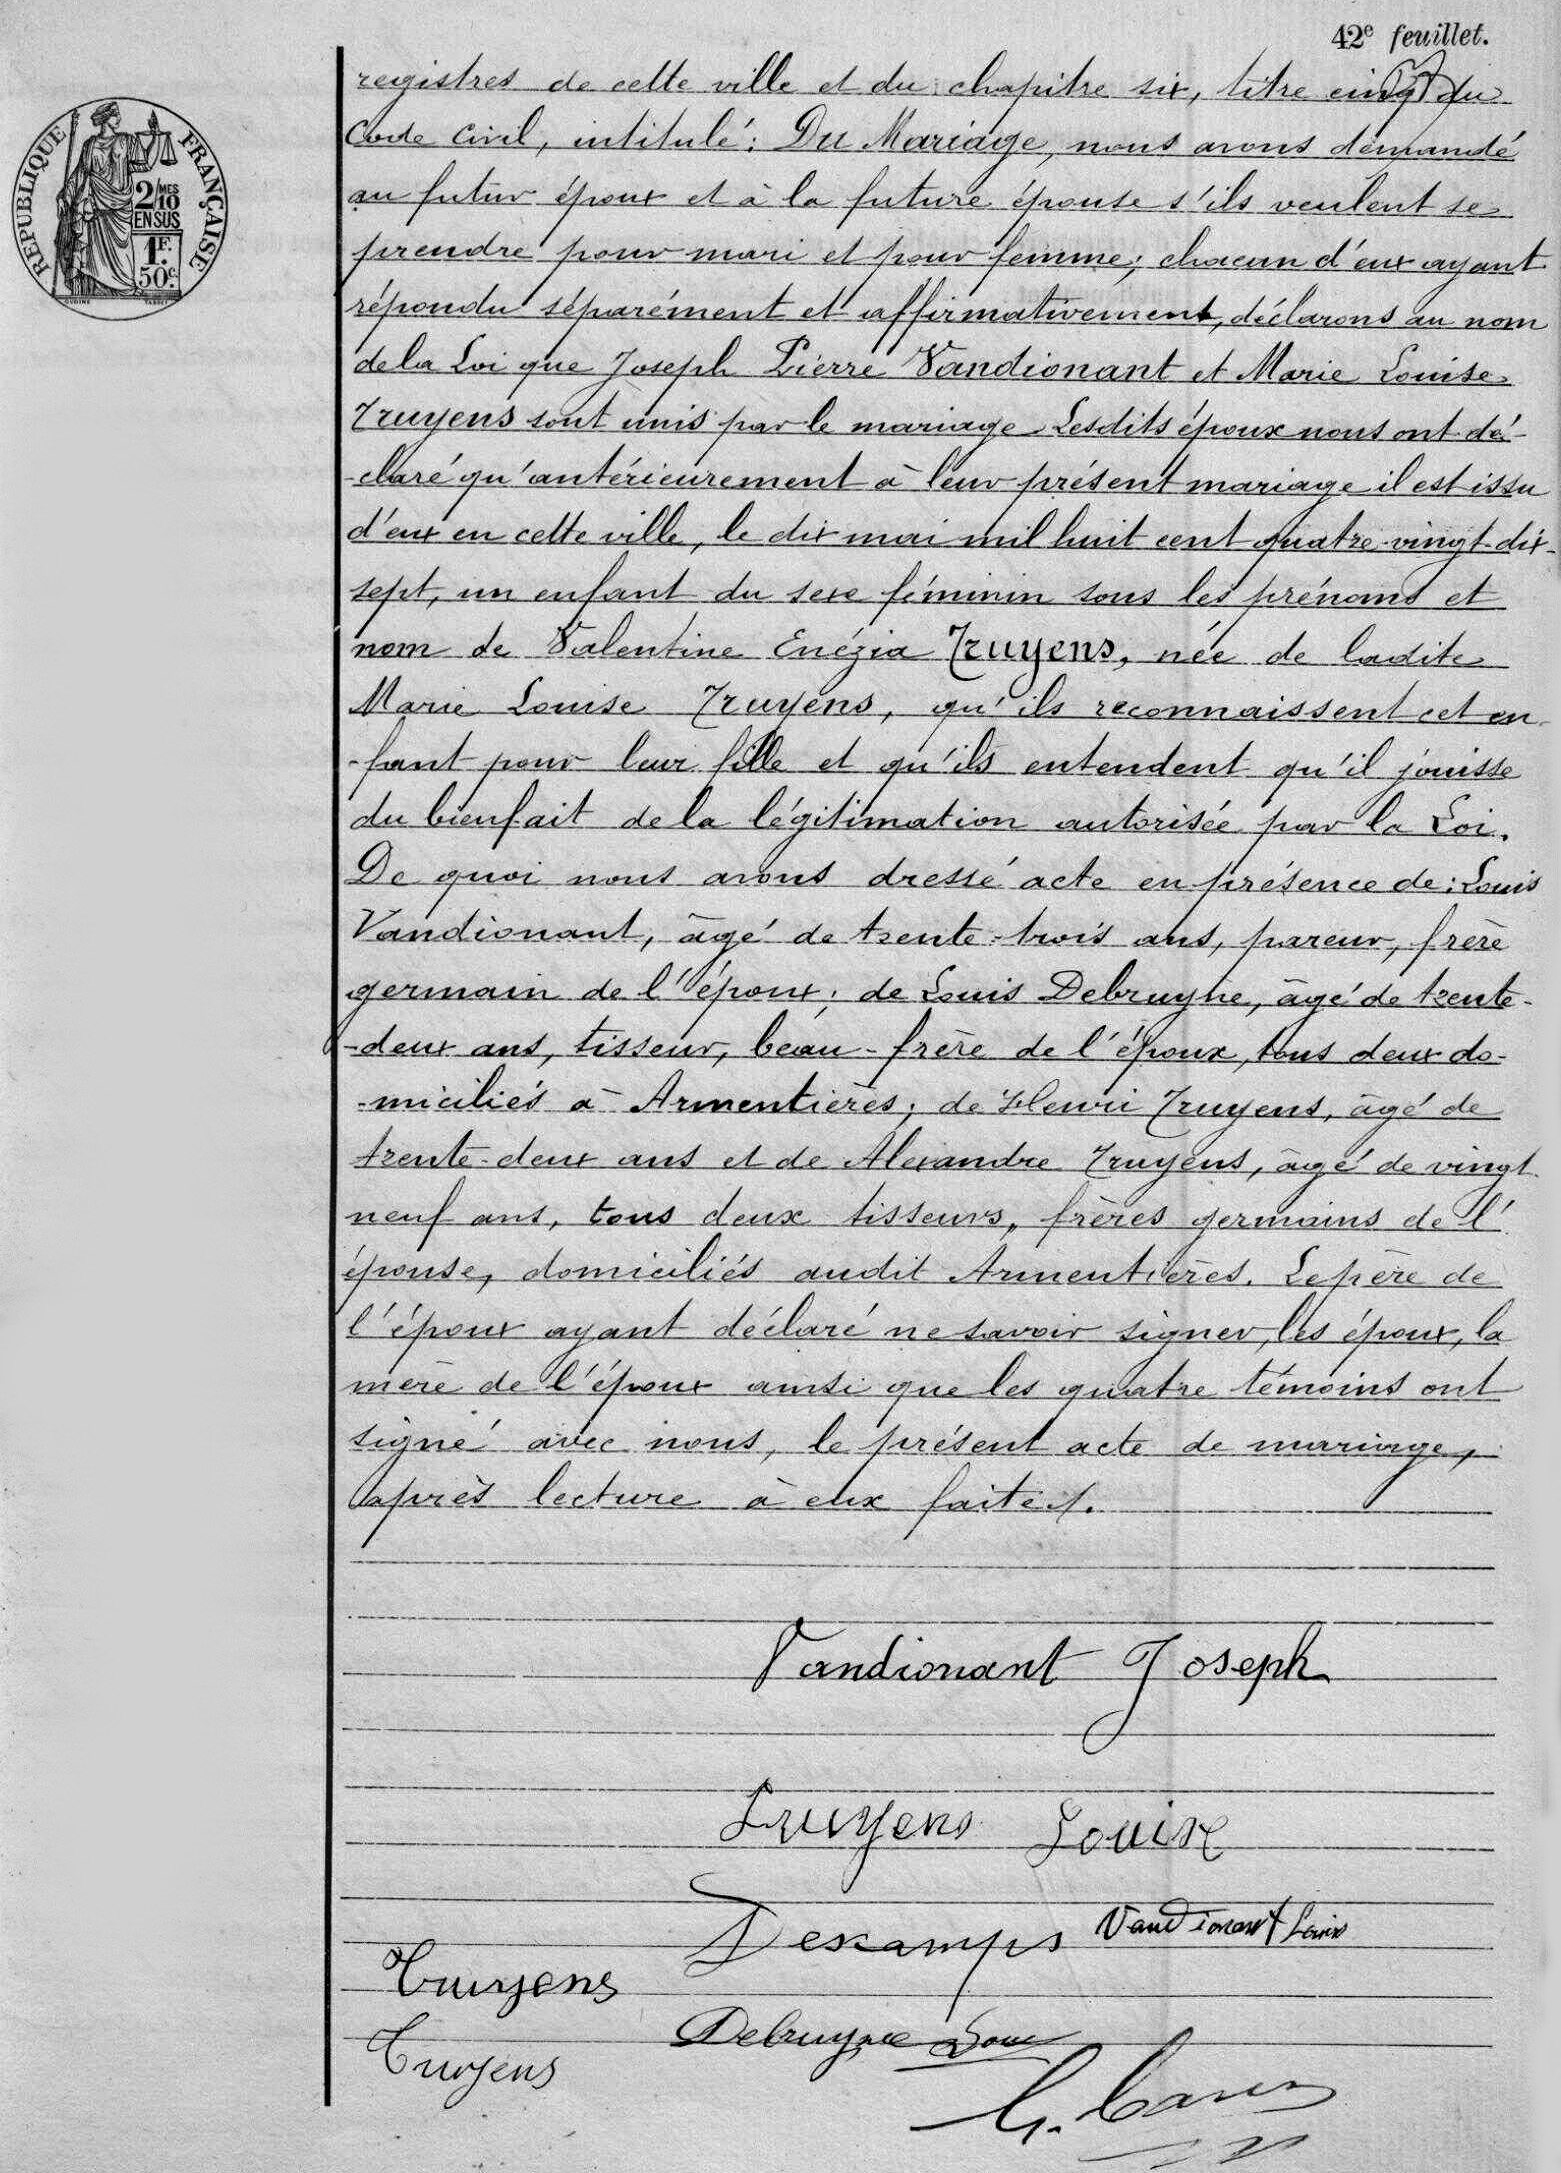 42e feuillet.
REPUBLIQUE FRANÇAISE
2/MES
10
EN SUS
1F.
50c.
registres de cette ville et du chapitre six, titre cinq du
Code Civil, intitulé : Du Mariage, nous avons demandé
au futur époux et à la future épouse s'ils veulent se
prendre pour mari et pour femme ; chacun d'eux ayant
répondu séparément et affirmativement, déclarons au nom
de la Loi que Joseph Pierre Vandionant et Marie Louise
Truyens sont unis par le mariage. Lesdits époux nous ont dé-
-claré qu'antérieurement à leur présent mariage il est issu
d'eux en cette ville, le dix mai mil huit cent quatre-vingt-dix-
sept, un enfant du sexe féminin sous les prénoms et
nom de Valentine Enézia Truyens, née de ladite
Marie Louise Truyens, qu'ils reconnaissent cet en-
-fant pour leur fille et qu'ils entendent qu'il jouisse
du bienfait de la légitimation autorisée par la Loi.
De quoi nous avons dressé acte en présence de : Louis
Vandionant, âgé de trente-trois ans, pareur, frère
germain de l'époux ; de Louis Debruyne, âgé de trente-
-deux ans, tisseur, beau-frère de l'époux, tous deux do-
-miciliés à Armentières ; de Henri Truyens, âgé de
trente-deux ans et de Alexandre Truyens, âgé de vingt-
neuf ans, tous deux tisseurs, frères germains de l'
épouse, domiciliés audit Armentières. Le père de
l'époux ayant déclaré ne savoir signer, les époux, la
mère de l'époux ainsi que les quatre témoins ont
signé avec nous, le présent acte de mariage,
après lecture à eux faite./.
Vandionant Joseph
Truyens Louise
Descamps Vandionant Louis
Truyens
Debruyne Louis
Truyens